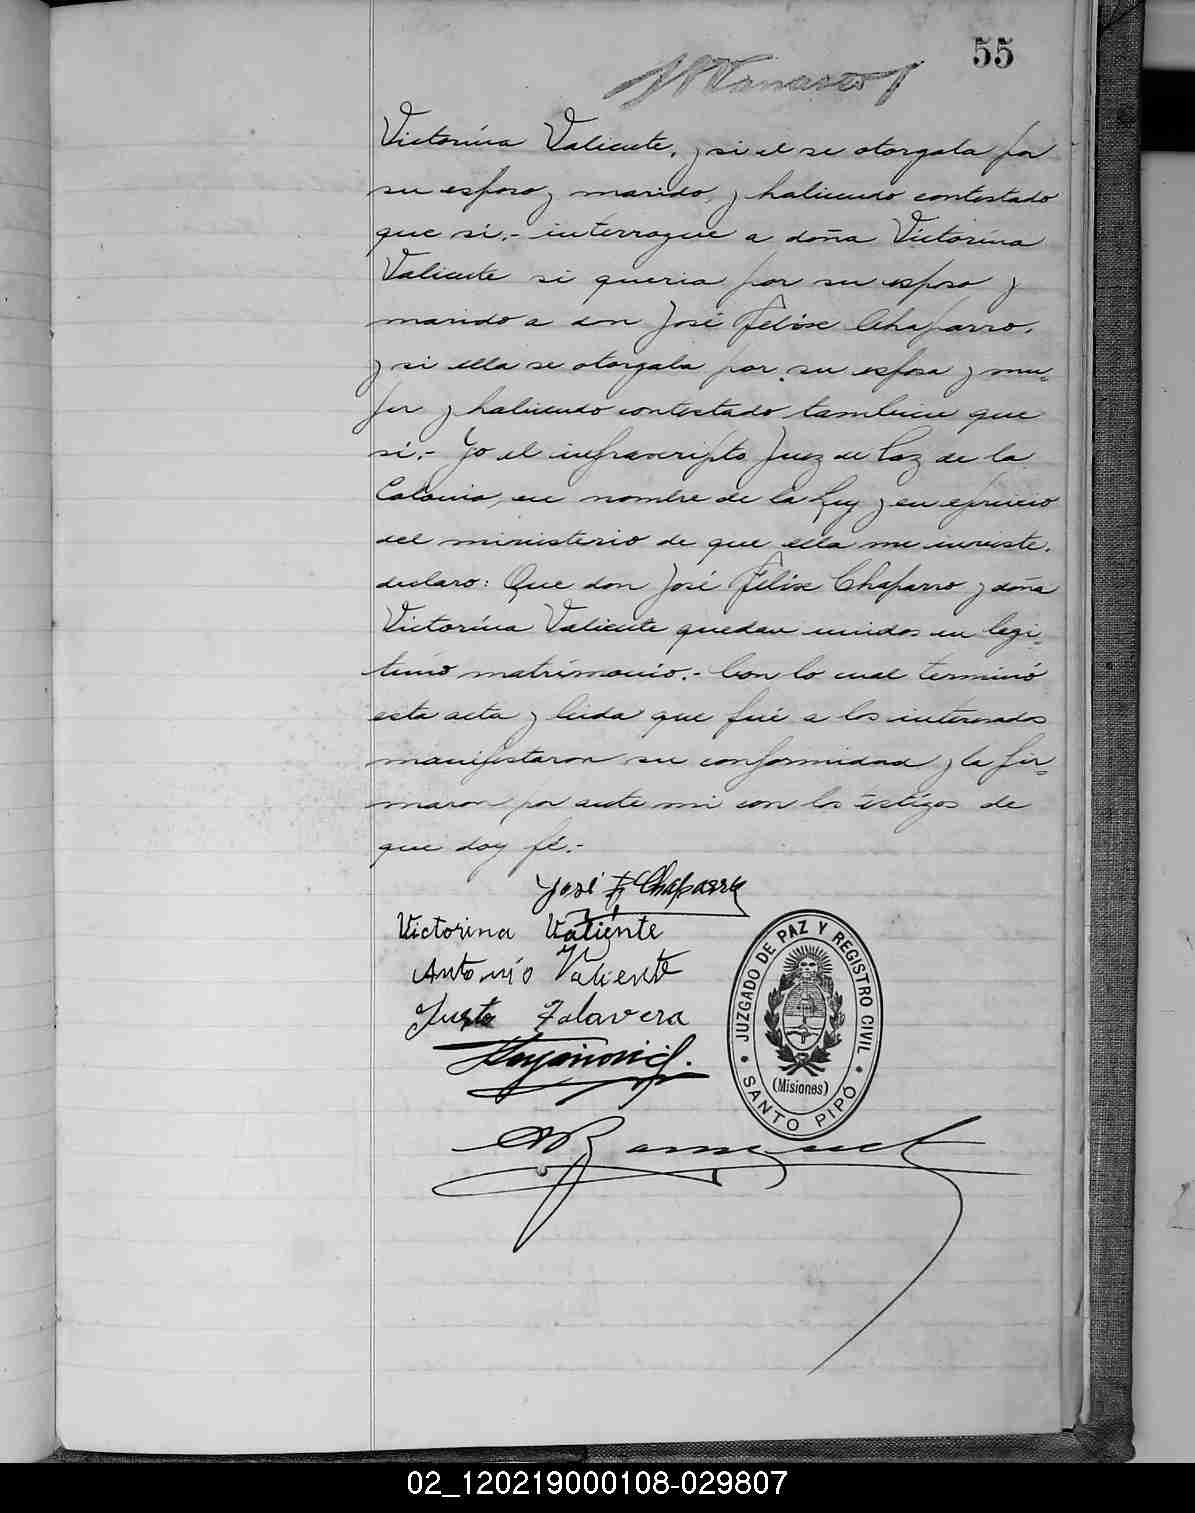 55
Victorina Valiente, y si el se otorgaba por
su esposo y marido, y habiendo contestado
que sí.- interrogue a doña Victorina
Valiente si queria por su esposo y
marido a don José Félix Chaparro,
y si ella se otorgaba por su esposa y mu-
jer y habiendo contestado tambien que
sí.- Yo el infrascripto Juez de Paz de la
Colonia, en nombre de la Ley y en ejercicio
del ministerio de que ella me inviste,
declaro: Que don José Félix Chaparro y doña
Victorina Valiente quedan unidos en legi-
timo matrimonio.- Con lo cual terminó
esta acta y leida que fué a los interesados
manifestaron su conformidad y la fir-
maron por ante mi con los testigos de
que doy fé.-
José F. Chaparro
Victorina Valiente
Antonio Valiente
Justo Talavera
JUZGADO DE PAZ Y REGISTRO CIVIL
(Misiones)
SANTO PIPÓ
02_120219000108-029807